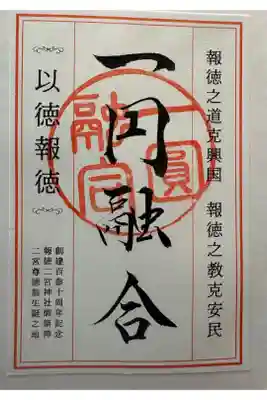 報徳之道克興国　報徳之教克安民
一円融合
一圓融合
以徳報徳
創建百参十周年記念
報徳二宮神社御鎮座
二宮尊徳翁生誕之地